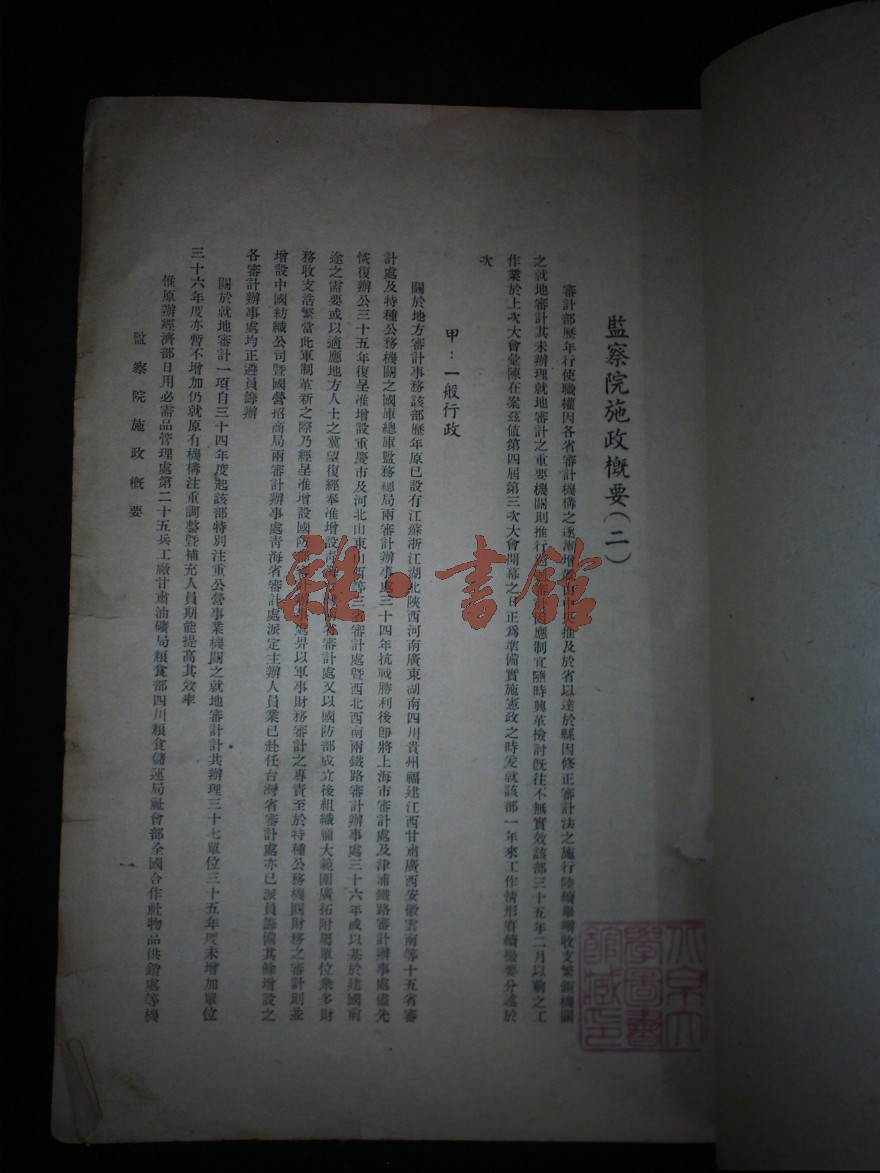 監察院施政概要(二)
審計部歷年行使職權因各省審計機構之逐漸增 推及於省以達於縣因修正審計法之施行陸續舉辦收支繁鉅機關
之就地審計其未辦理就地審計之重要機關則推行 應制宜隨時興革檢討旣往不無實效該部三十五年二月以前之工
作業於上次大會彙陳在案茲值第四屆第三次大會開幕之日正爲準備實施憲政之時爰就該部一年來工作情形賡續撮要分述於
次
甲:一般行政
關於地方審計事務該部歷年原已設有江蘇浙江湖北陝西河南廣東湖南四川貴州福建江西甘肅廣西安徽雲南等十五省審
計處及特種公務機關之國庫總庫監務總局兩審計辦事處三十四年抗戰勝利後卽將上海市審計處及津浦鐵路審計辦事處儘先
恢復辦公三十五年復呈准增設重慶市及河北山東山西等三省審計處暨西北西南兩鐵路審計辦事處三十六年或以基於建國前
途之需要或以適應地方人士之冀望復經奉准增設青海 省審計處又以國防部成立後組織龐大範圍廣拓附屬單位衆多財
務收支浩繁當此軍制革新之際乃經呈准增設國防部 處畀以軍事財務審計之專責至於特種公務機關財務之審計則並
增設中國紡織公司暨國營招商局兩審計辦事處青海省審計處派定主辦人員業已赴任台灣省審計處亦已派員籌備其餘增設之
各審計辦事處均正遴員籌辦
關於就地審計一項自三十四年度起該部特別注重公營事業機關之就地審計計共辦理三十七單位三十五年度未增加單位
三十六年度亦暫不增加仍就原有機構注重調整暨補充人員期能提高其效率
惟原辦經濟部日用必需品管理處第二十五兵工廠甘肅油礦局糧食部四川糧食儲運局社會部全國合作社物品供銷處等機
監察院施政概要
一
雜·書館
北京大
學圖書
館藏印